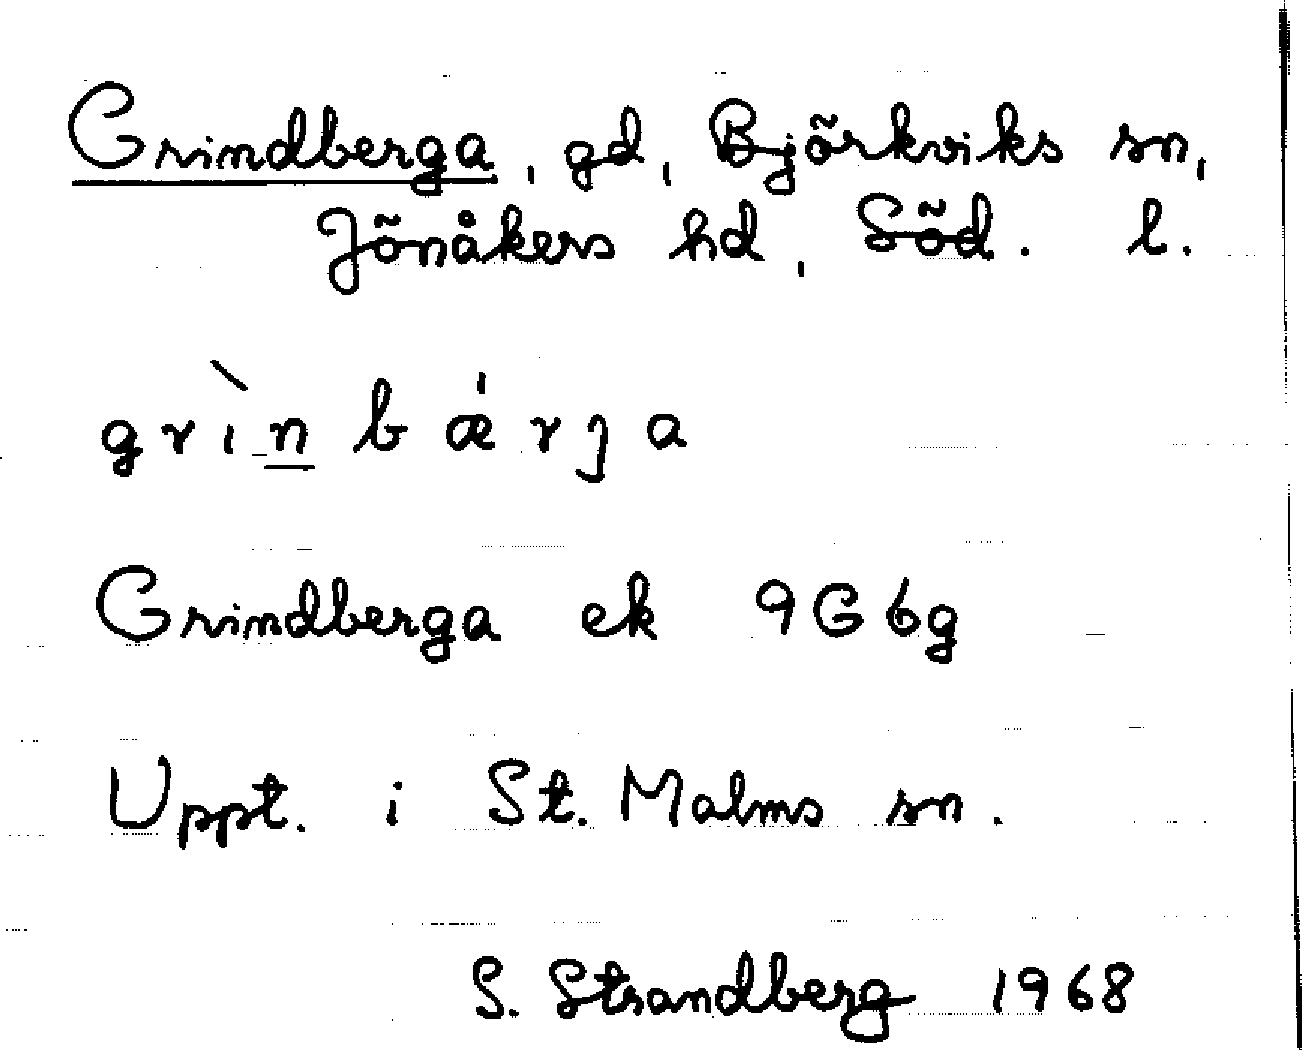 Grindberga, gd, Björkviks sn,
Jönåkers hd, Söd. l.
grìn bǽrja
Grindberga ek 9G6g
Uppt. i St. Malms sn.
S. Strandberg 1968